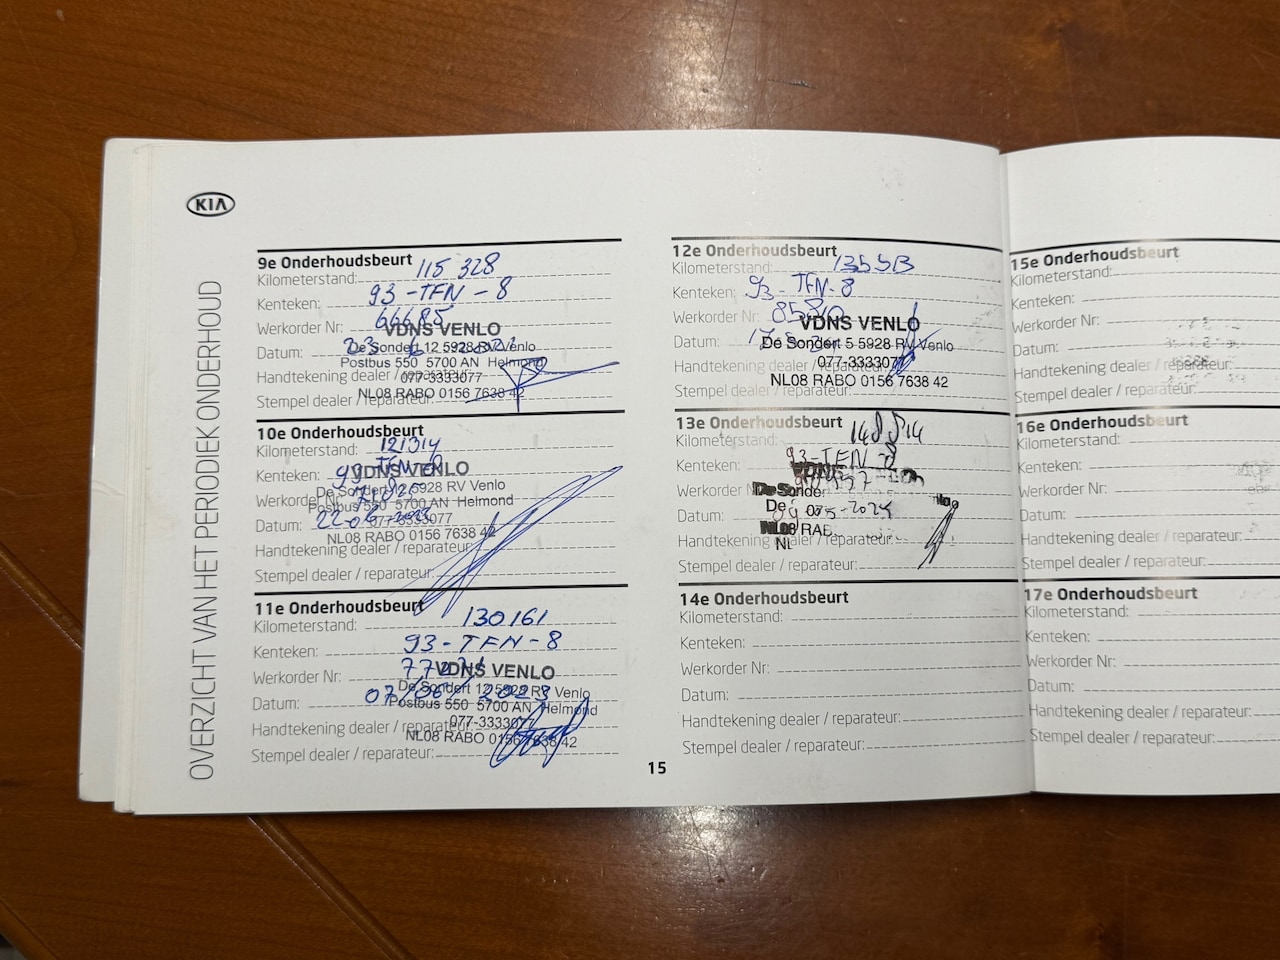 KIA
OVERZICHT VAN HET PERIODIEK ONDERHOUD
9e Onderhoudsbeurt
Kilometerstand: 115 328
Kenteken: 93-TFN-8
Werkorder Nr: 66685
VDNS VENLO
De Sondert 12 5928 RV Venlo
Datum: 23
Postbus 550 5700 AN Helmond
Handtekening dealer / reparateur:
077-3333077
NL08 RABO 0156 7638 42
Stempel dealer / reparateur:
10e Onderhoudsbeurt
Kilometerstand: 121314
Kenteken: 93 TFN-8
VDNS VENLO
De Sondert 12 5928 RV Venlo
Werkorder Nr:
Postbus 550 5700 AN Helmond
Datum: 22
077-3333077
NL08 RABO 0156 7638 42
Handtekening dealer / reparateur:
Stempel dealer / reparateur:
11e Onderhoudsbeurt
Kilometerstand: 130161
Kenteken: 93-TFN-8
Werkorder Nr:
VDNS VENLO
De Sondert 12 5928 RV Venlo
Datum: 07/06/2023
Postbus 550 5700 AN Helmond
Handtekening dealer / reparateur:
077-3333077
NL08 RABO 0156 7638 42
Stempel dealer / reparateur:
12e Onderhoudsbeurt
Kilometerstand:
Kenteken: 93-TFN-8
Werkorder Nr: 85810
VDNS VENLO
Datum:
De Sondert 5 5928 RV Venlo
Handtekening dealer / reparateur:
077-3333077
NL08 RABO 0156 7638 42
Stempel dealer / reparateur:
13e Onderhoudsbeurt
Kilometerstand: 148814
Kenteken: 93-TFN-8
Werkorder N
De Sonder
Datum:
De
NL08 RAB
Handtekening dealer / reparateur:
NL
Stempel dealer / reparateur:
14e Onderhoudsbeurt
Kilometerstand:
Kenteken:
Werkorder Nr:
Datum:
Handtekening dealer / reparateur:
Stempel dealer / reparateur:
15
15e Onderhoudsbeurt
Kilometerstand:
Kenteken:
Werkorder Nr:
Datum:
Handtekening dealer / reparateur:
Stempel dealer / reparateur:
16e Onderhoudsbeurt
Kilometerstand:
Kenteken:
Werkorder Nr:
Datum:
Handtekening dealer / reparateur:
Stempel dealer / reparateur:
17e Onderhoudsbeurt
Kilometerstand:
Kenteken:
Werkorder Nr:
Datum:
Handtekening dealer / reparateur:
Stempel dealer / reparateur: